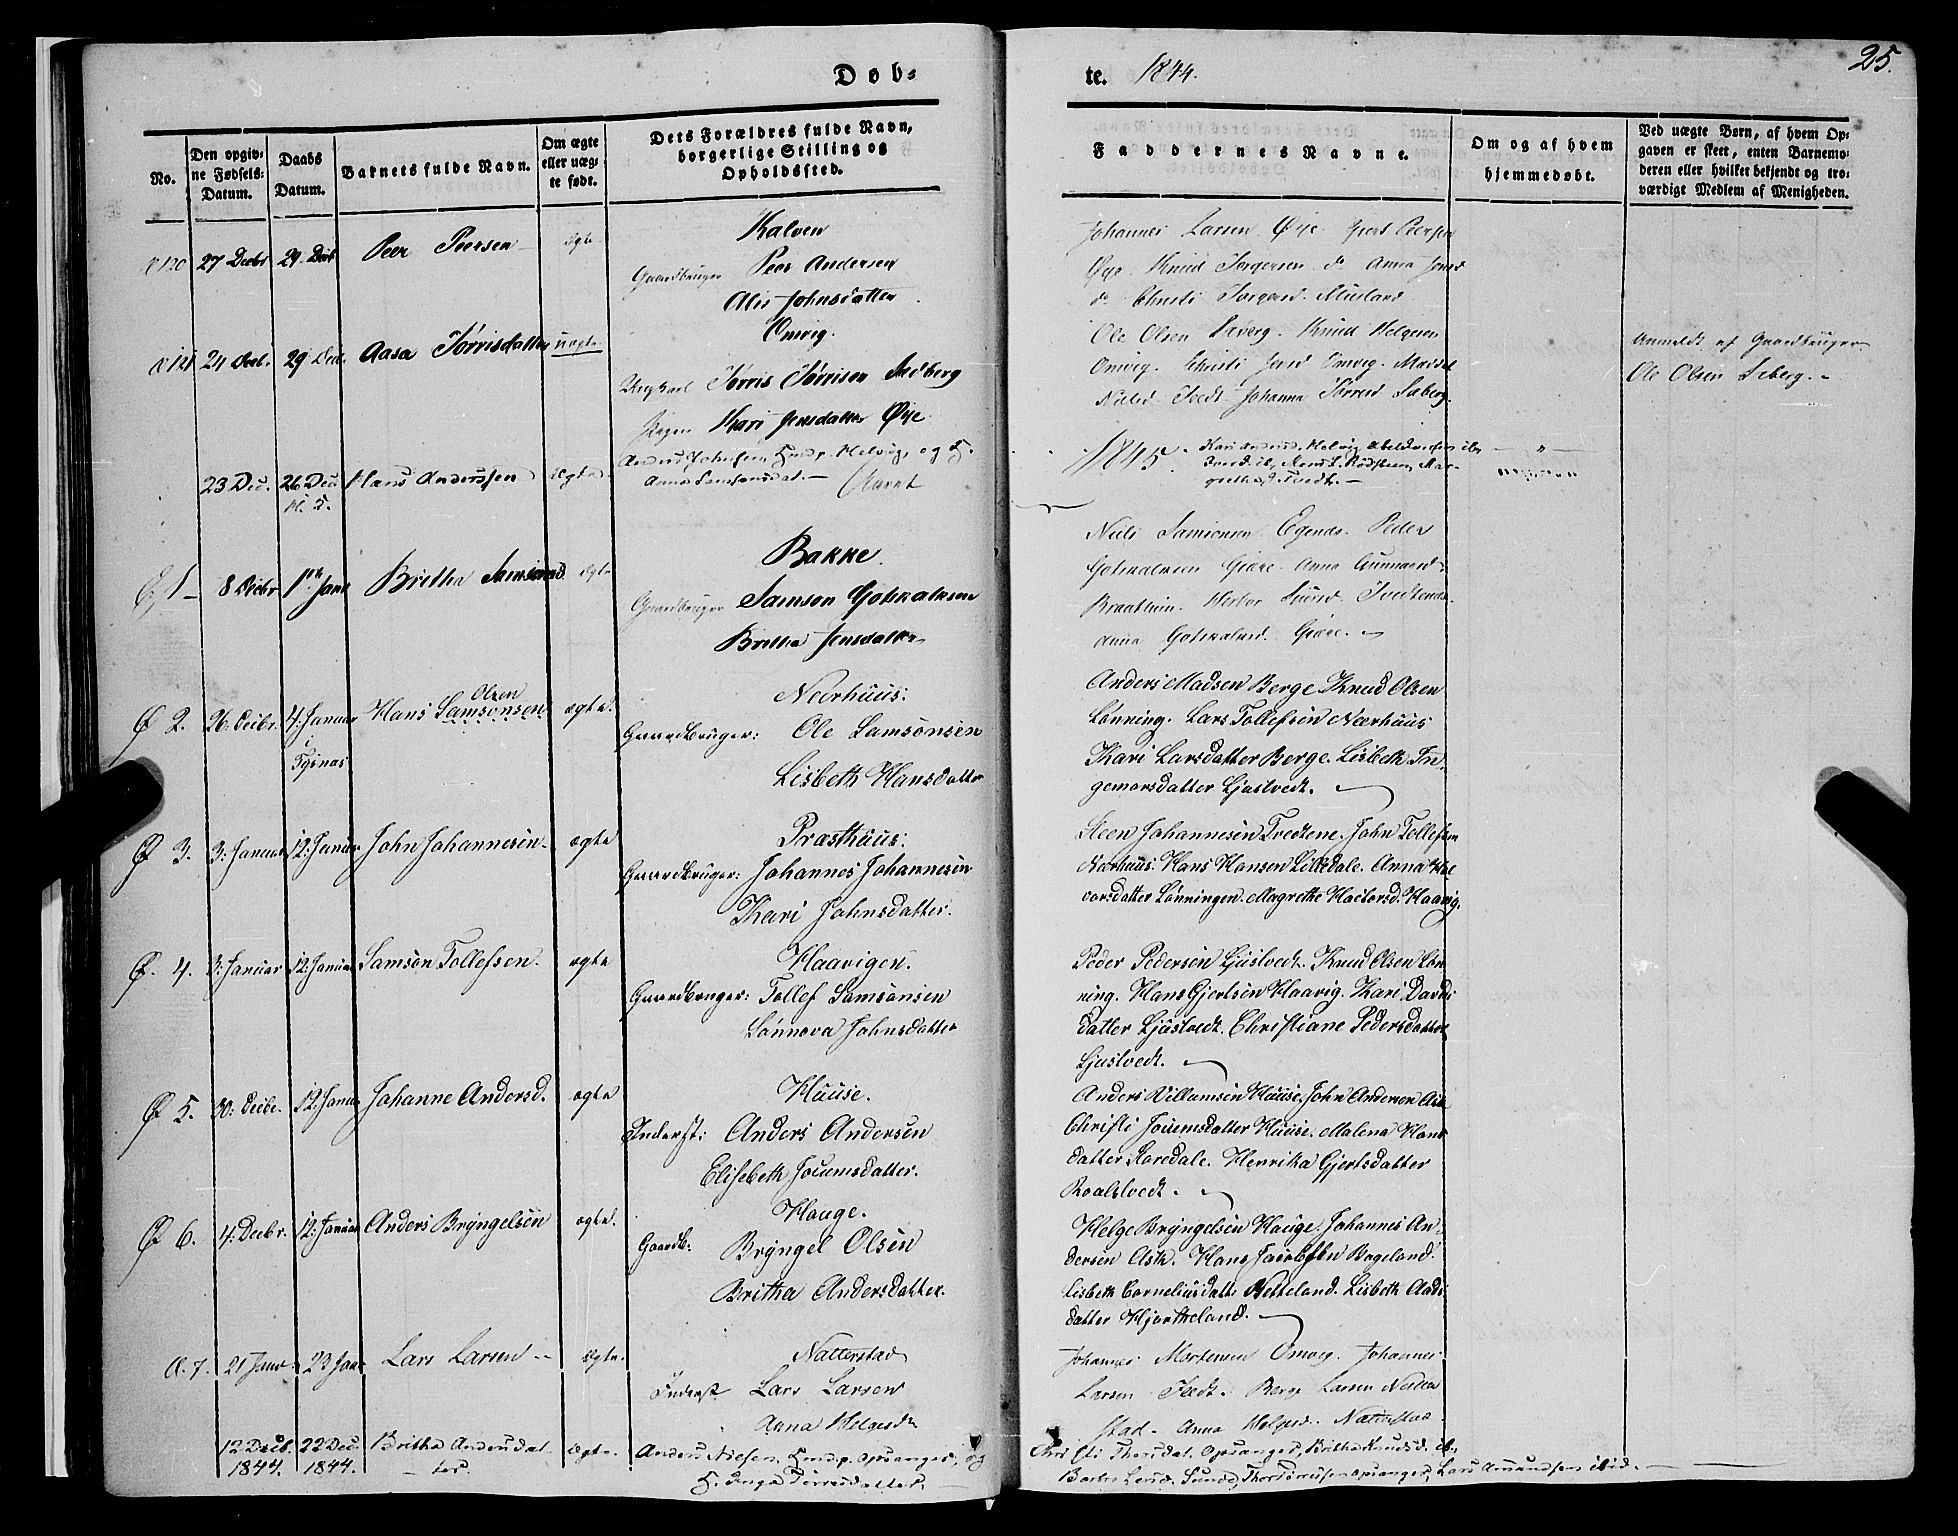 Døb-
te. 1844.
25.
No.
Den opgiv-
ne Fødsels-
Datum.
Daabs
Datum.
Barnets fulde Navn.
Om ægte
eller uæg-
te født.
Dets Forældres fulde Navn,
borgerlige Stilling og
Opholdssted.
Faddernes Navne.
Om og af hvem
hjemmedøbt.
Ved uægte Børn, af hvem Op-
gaven er skeet, enten Barnemo-
deren eller hvilket bekjendt og tro-
værdigt Medlem af Menigheden.
120 27 Decbr 29 Decb Peer Peersen ægte Kalven
Gaardbruger Peer Andersen
Alis Johnsdatter
Johannes Larsen Øye
Øye Knud Torgersen do Anna
do Christi
121 24 Decb. 29 Decb. Aasa Tørrisdatter uægte Omvig.
Ungkarl Tørris Tørrisen
Pigen Kari Jensdatter Øye
Ole Olsen Knud Helgesen
Omvig. Christi Omvig.
Johanna
Anmeldt af Gaardbruger
Ole Olsen Seberg.
23 Dec. 26 Dec. Hans Anderssen ægte
Anders Johnsen, Helvig, og H.
Anna Samsonsdat.
1845.
1 8 Decbr 1ste Janr Britha Samsonsd. ægte Bakke.
Gaardbruger Samson Gotskalksen
Britha Jensdatter
Niels Samsonsen Egenes. Peder
Gotskalksen Gjøre. Anna
Anna Gotskalksd. Gjøre.
Ø 2. 26. Decbr. 4. Januar i Tysnæs Hans Samsonsen Olsen ægte. Neerhuus:
Gaardbruger: Ole Samsonsen
Lisbeth Hansdatter
Anders Madsen Berge. Knud Olsen
Lønning. Lars Tollefsen Neerhuus
Kari Larsdatter Berge. Lisbeth In-
gemorsdatter Ljustvedt.
Ø 3. 3. Januar 12. Januar John Johannesen. ægte Præsthuus:
Gaardbruger: Johannes Johannesen
Kari Johnsdatter.
Steen Johannesen Tvedtene. John Tollefsen
Nærhuus. Hans Hansen Lilledale. Anna Hal-
vorsdatter Lønningen. Magrethe Hactorsd. Haavig.
Ø 4. 3. Januar 12. Januar Samson Tollefsen. ægte Haavigen.
Gaardbruger: Tollef Samsonsen
Lønnova Johnsdatter
Peder Pedersen Ljustvedt. Knud Olsen Løn-
ning. Hans Gjertsen Haavig. Kari Davids
datter Ljustvedt. Christiane Pedersdatter
Ljustvedt.
Ø 5. 30. Decbr. 12. Januar Johanne Andersd. ægte Huuse.
Inderst: Anders Andersen
Elisebeth Jocumsdatter.
Anders Villumsen Huuse. John Andersen Ask
Christi Jocumsdatter Huuse. Malena Hans
datter Høredale. Henrika Gjertsdatter
Roaldtvedt.
Ø 6. 4. Decbr. 12. Januar Anders Bryngelsen ægte. Hauge.
Gaardb: Bryngel Olsen
Britha Andersdatter.
Helge Bryngelsen Hauge. Johannes An-
dersen Ask. Hans Jacobsen Bogeland.
Lisbeth Corneliusdatt. Netteland. Lisbeth Aads
datter Hjortheland.
7. 21 Janr 23 Janr Lars Larsen ægte. Natterstad
Inderst Lars Larsen
Anna Helgesdtr
Johannes Mortensen Omvig. Johannes
Larsen Tvedt. Berge Larsen Natter
stad. Anna Helgesd. Natterstad.
12 Decb. 1844. 22 Dec. 1844. Britha Andersdat-
ter. ægte. Anders Nielsen, Opsanger, og
H. Inga Tørresdatter.
Christi Thorsdat. Opsanger, Britha Knudsd. ib.
Barbro Larsd. Sunde, Thor Tørresen Opsanger, Lars Amundsen ibid.